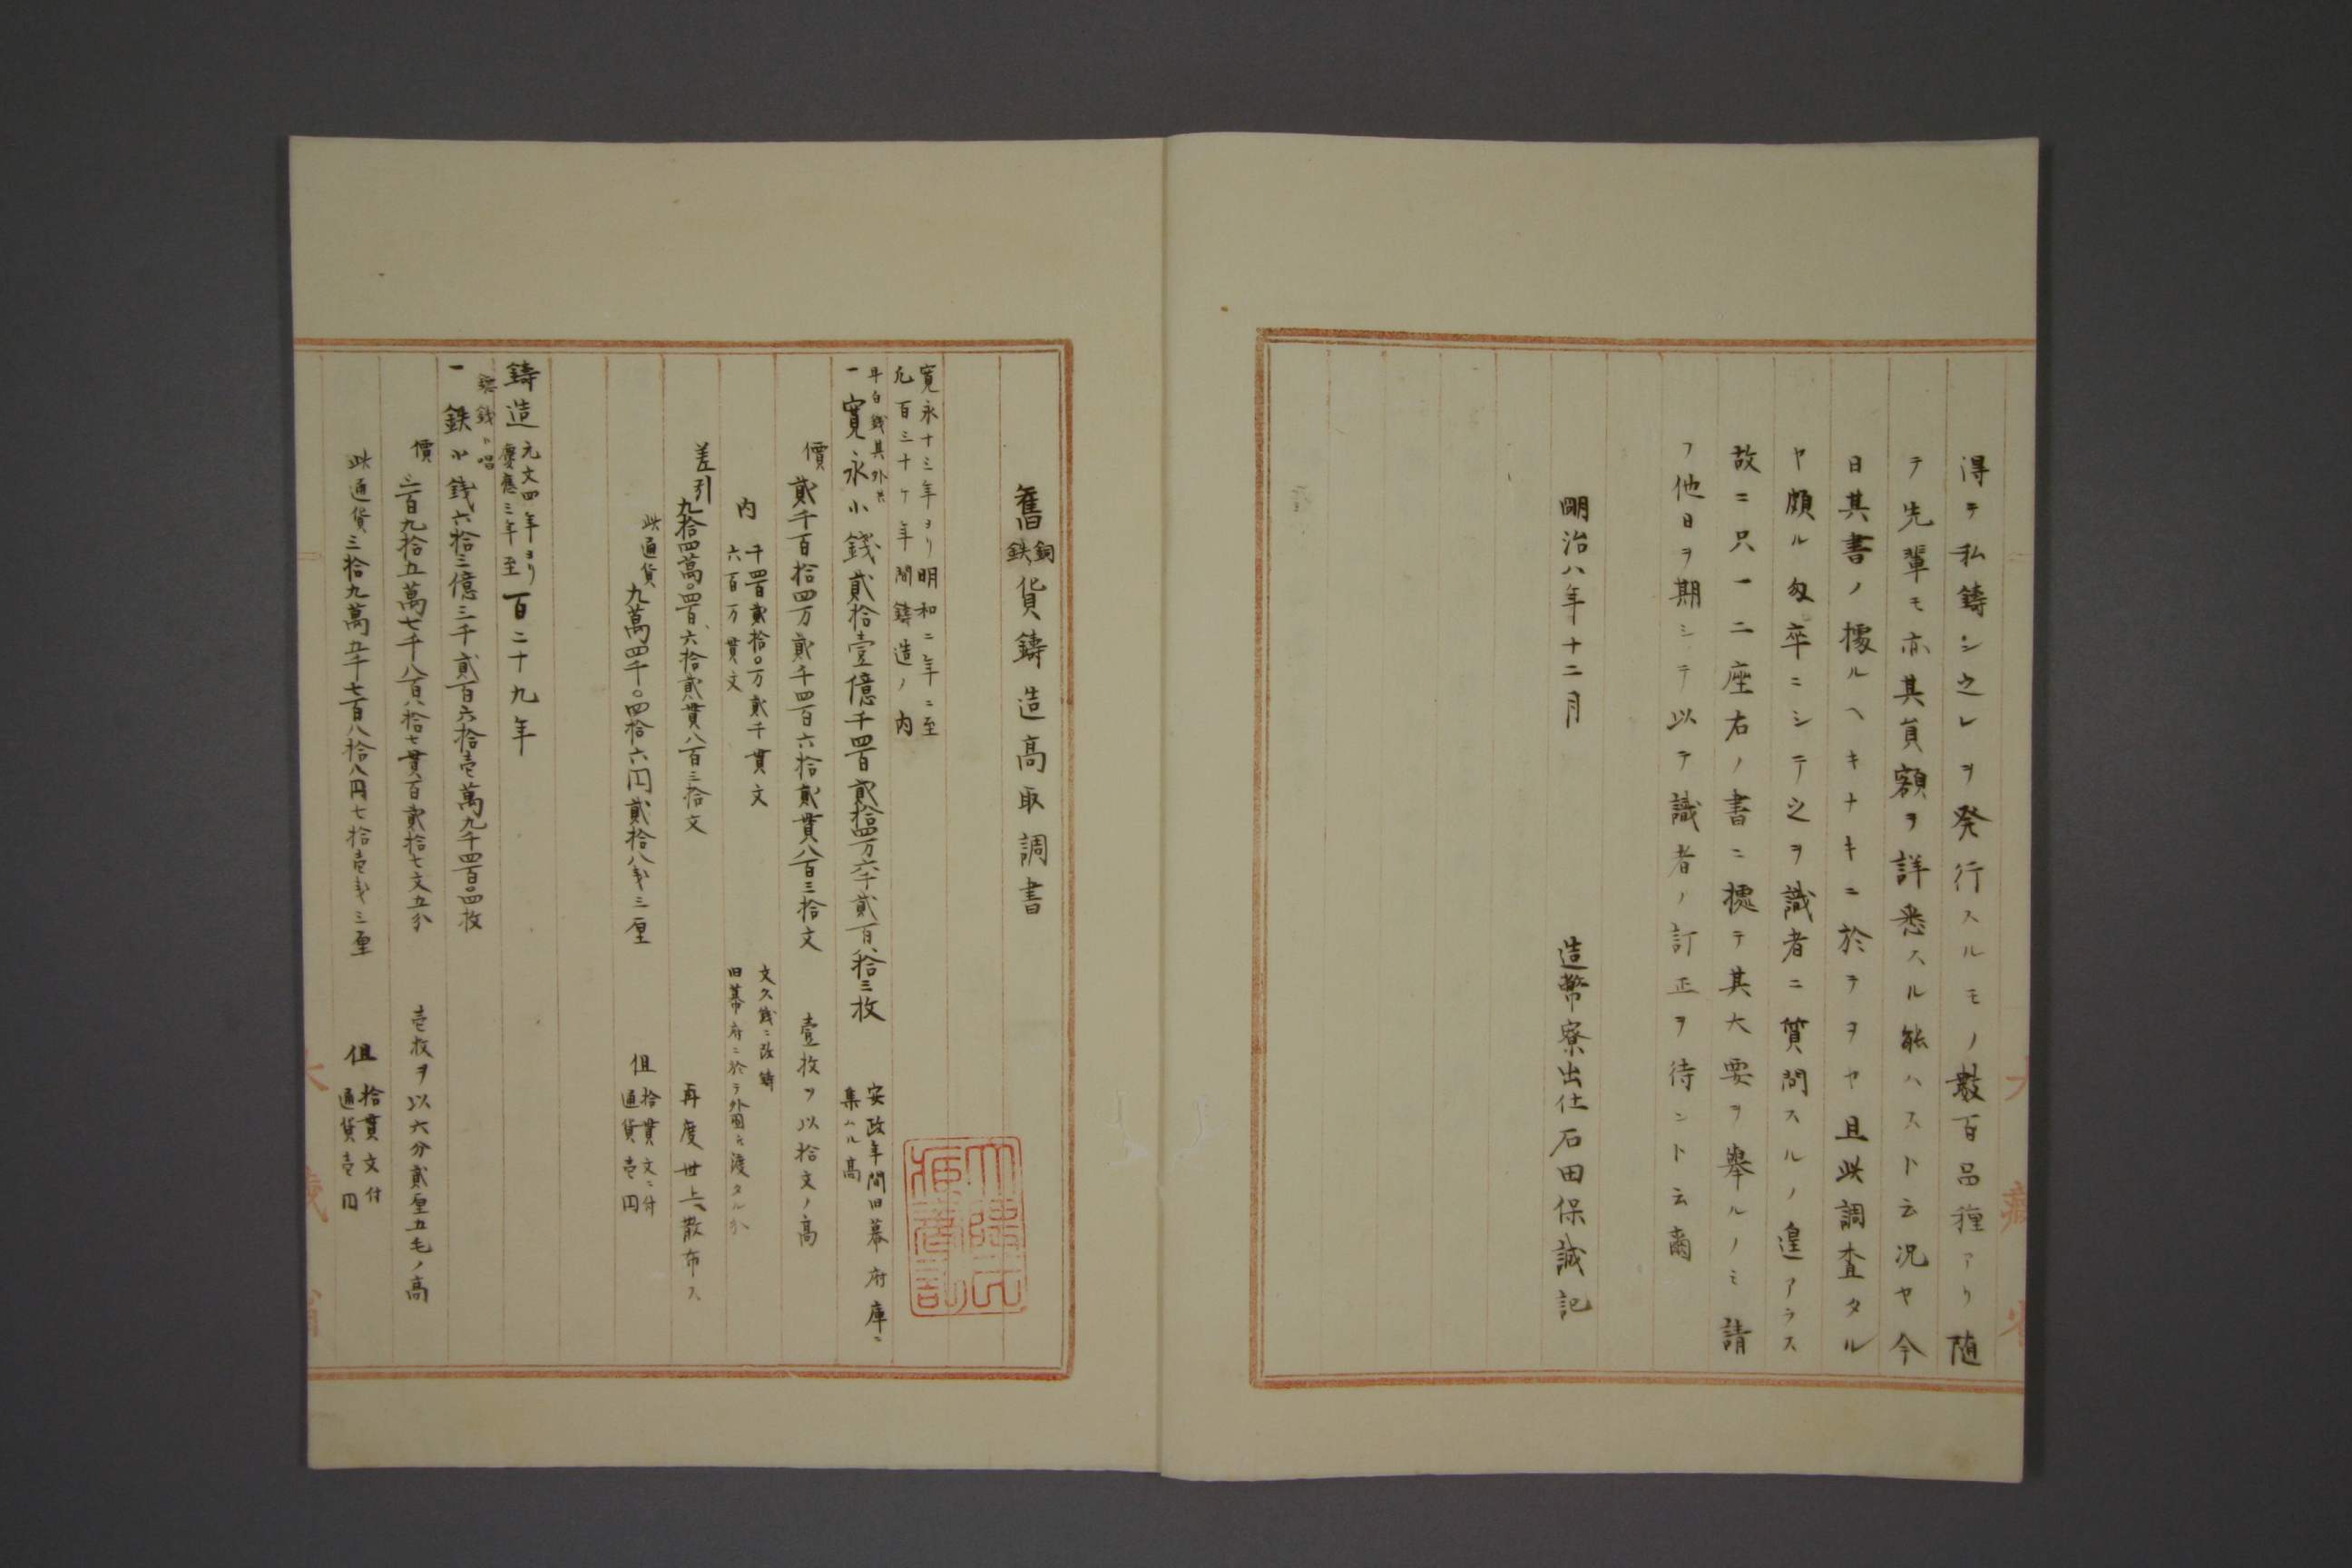 得テ私鋳シ之レヲ発行スルモノ数百品種アリ随
テ先輩モ亦其員額ヲ詳悉スル能ハスト云況ヤ今
日其書ノ據ルヘキナキニ於テヲヤ且此調査タル
ヤ頗ル匆卒ニシテ之ヲ識者ニ質問スルノ遑アラス
故ニ只一二座右ノ書ニ據テ其大要ヲ舉ルノミ請
フ他日ヲ期シテ以テ識者ノ訂正ヲ待ント云爾
明治八年十二月
造幣寮出仕石田保誠記
舊銅鉄貨鋳造高取調書
寛永十三年ヨリ明和二年ニ至
凡百三十ケ年間鋳造ノ内
耳白銭其外共
一寛永小錢貳拾壹億千四百貳拾四万六千貳百八拾三枚
安政年間旧幕府庫ニ
集ムル高
價貳千百拾四万貳千四百六拾貳貫八百三拾文
壹枚ヲ以拾文ノ高
内
千四百貳拾〇万貳千貫文
文久錢ニ改鋳
六百万貫文
旧幕府ニ於テ外国ヘ渡タル分
差引九拾四萬〇四百六拾貳貫八百三拾文
再度世上ヘ散布ス
此通貨九萬四千〇四拾六円貳拾八銭三厘
但
拾貫文ニ付
通貨壱円
鋳造
元文四年ヨリ
慶應三年至
百二十九年
銭ト唱
一鉄小錢六拾三億三千貳百六拾壱萬九千四百四枚
價三百九拾五萬七千八百八拾七貫百貳拾七文五分
壱枚ヲ以六分貳厘五毛ノ高
此通貨三拾九萬五千七百八拾八円七拾壱銭三厘
但
拾貫文付
通貨壱円